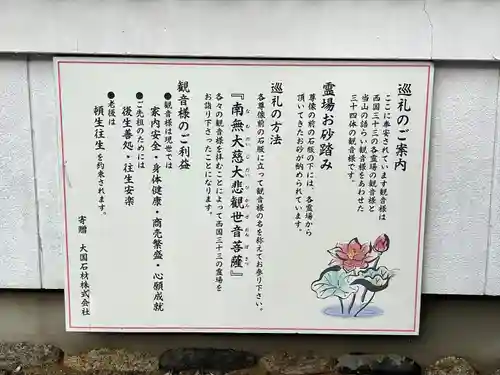 巡礼のご案内
ここに奉安されています観音様は
西国三十三の各霊場の観音様と
当山の語らい観音様をあわせた
三十四体の観音様です。
霊場お砂踏み
尊像の前の石版の下には、各霊場から
頂いてきたお砂が納められています。
巡礼の方法
各尊像前の石版に立って観音様の名を称えてお参り下さい。
『南無大慈大悲観世音菩薩』
なむだいじだいひかんぜおんぼさつ
各々の観音様を拝むことによって西国三十三の霊場を
お詣り下さったことになります。
観音様のご利益
●観音様は現世では
家内安全・身体健康・商売繁盛・心願成就
●ご先祖のためには
後生善処・往生安楽
●老後は
頓生往生を約束されます。
寄贈 大国石材株式会社